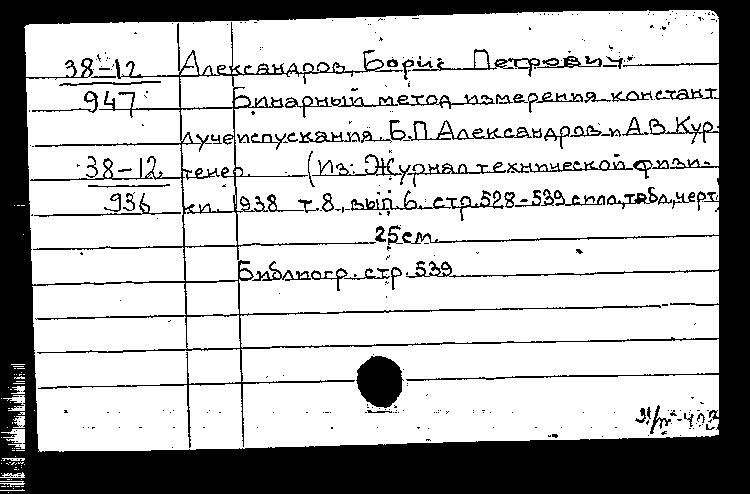 38-12 Александров, Борис Петрович.
947 Бинарный метод измерения констант
лучеиспускания. Б.П Александров и А.В. Кур-
38-12 тенер. (Из: Журнал технической физи-
936 ки. 1938 т.8, вып.6. стр.528-539 с илл., табл., черт.)
25см.
Библиогр. стр. 539